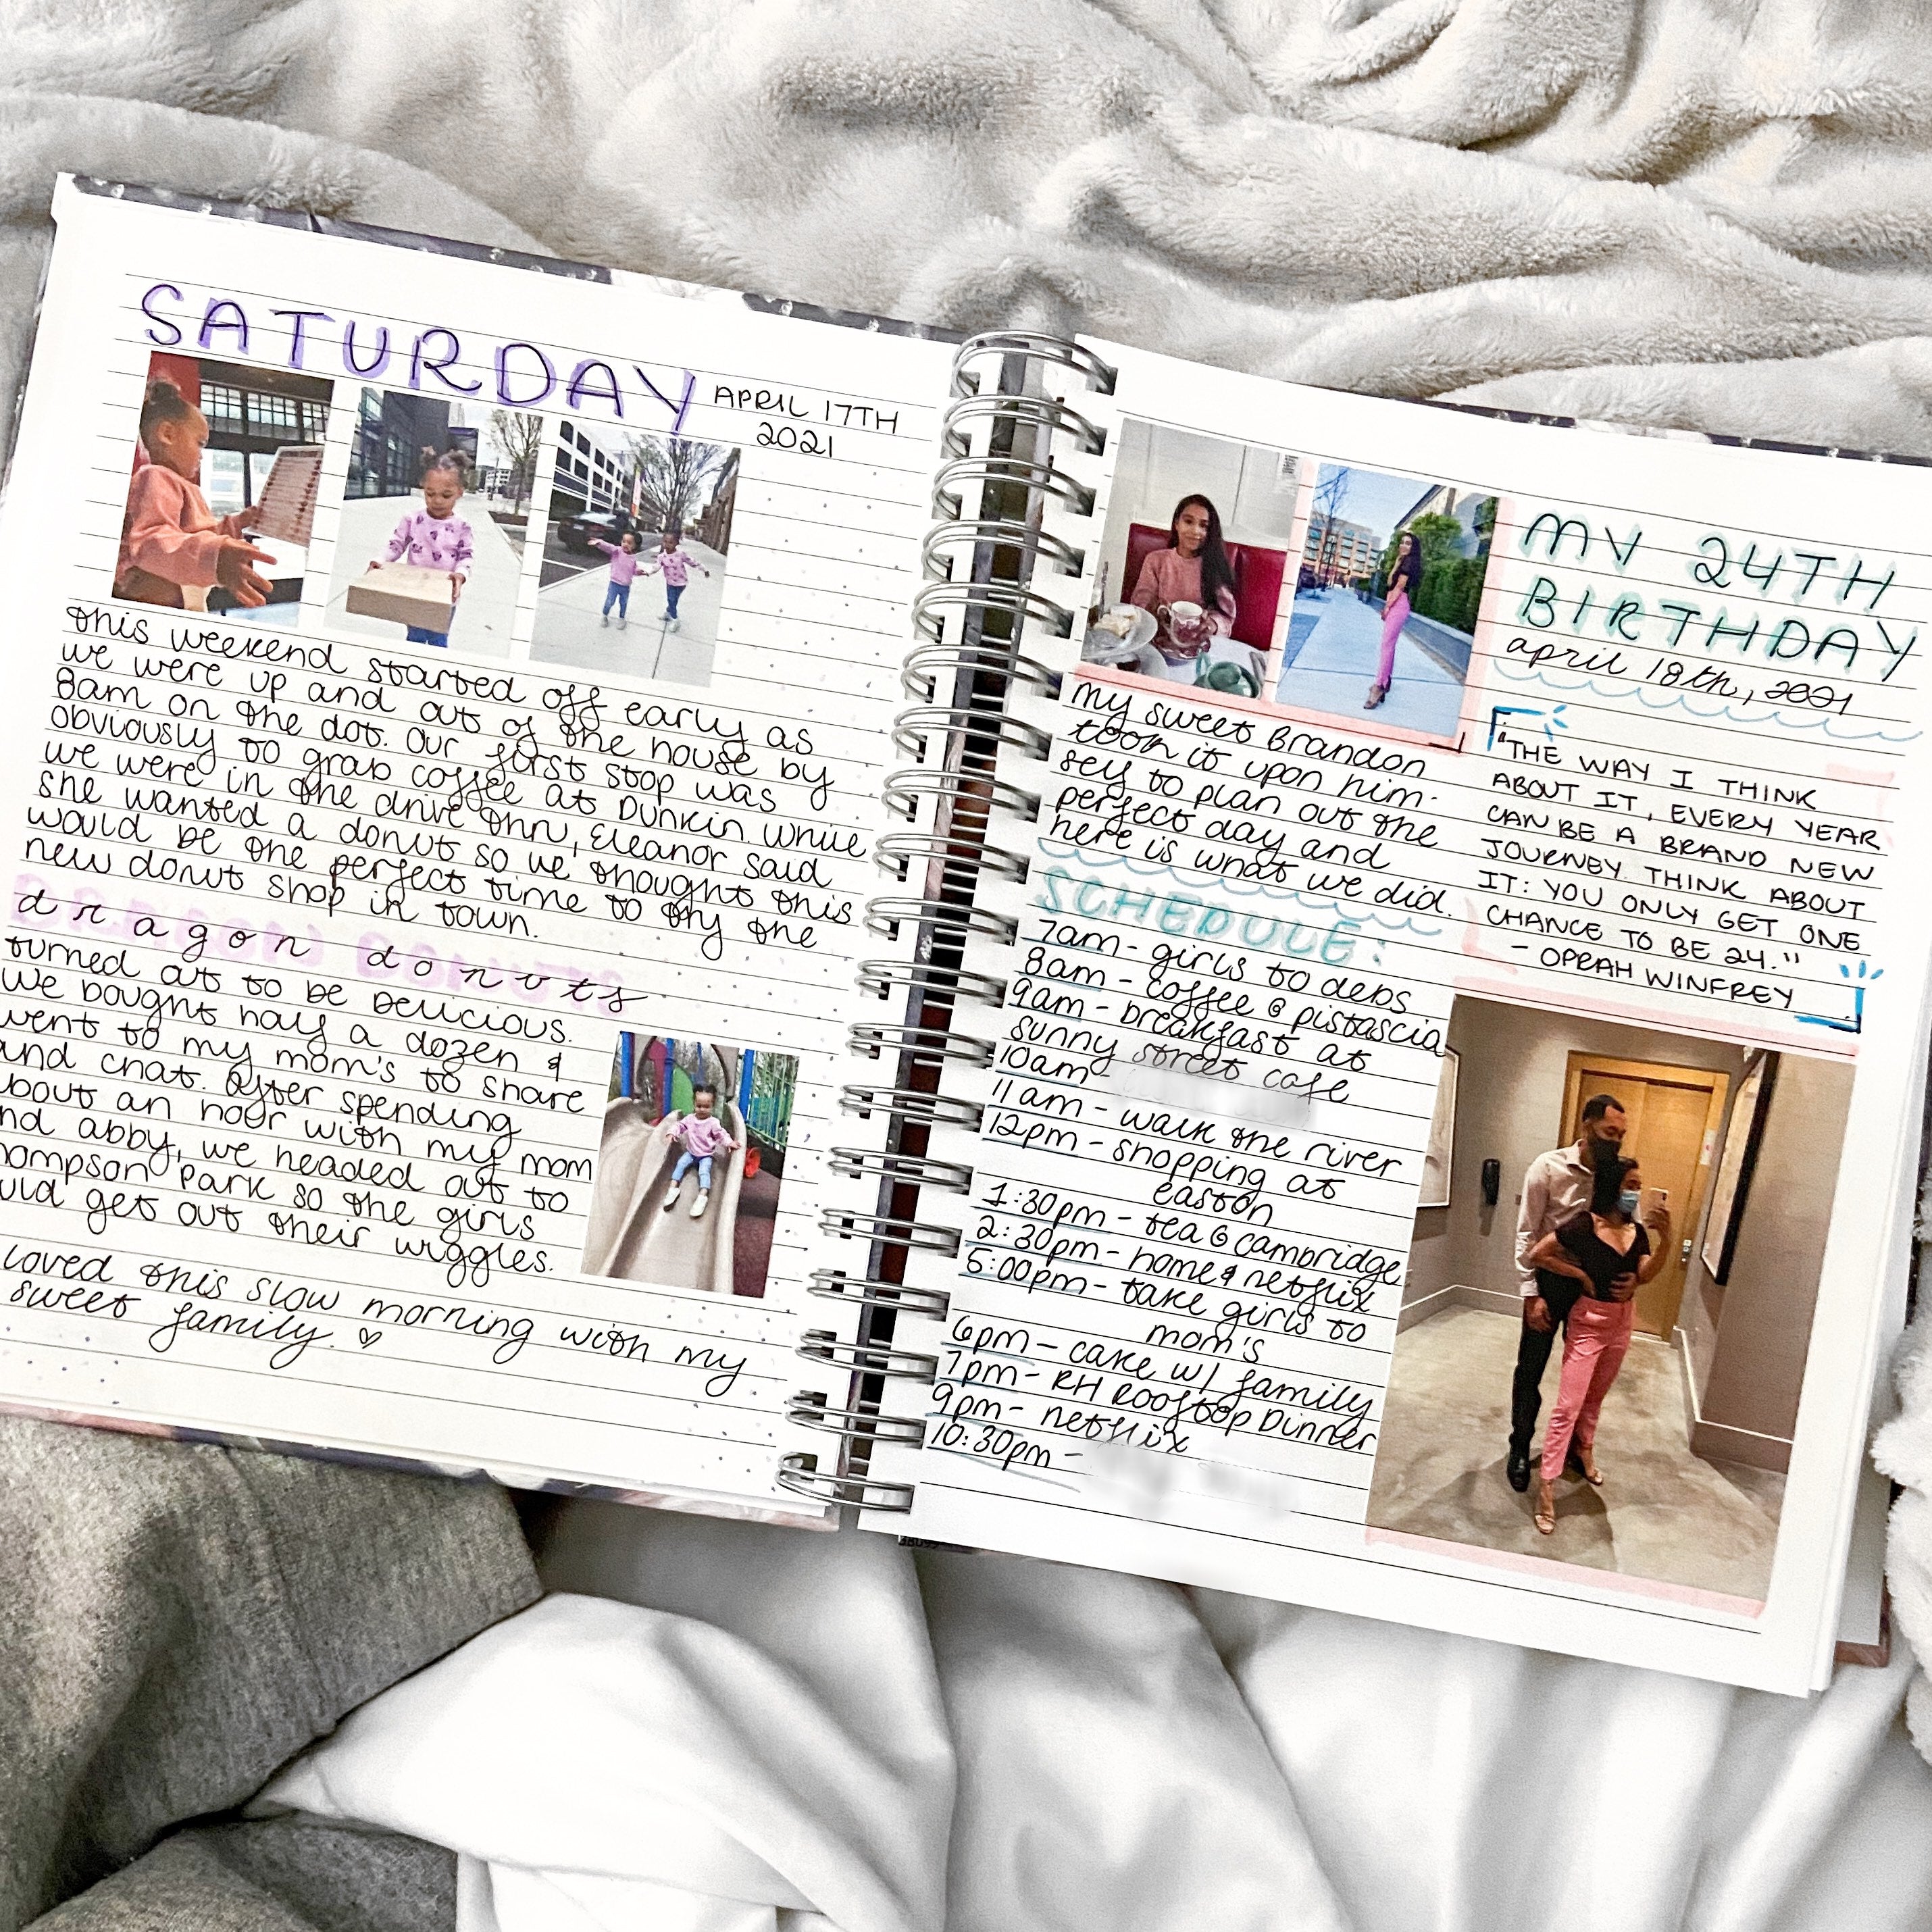 SATURDAY
APRIL 17TH
2021
this weekend started off early as
we were up and out of the house by
8am on the dot. our first stop was
obviously to grab coffee at Dunkin. while
we were in the drive thru, Eleanor said
she wanted a donut so we thought this
would be the perfect time to try the
new donut shop in town.
dragon donuts
turned out to be delicious.
We bought half a dozen &
went to my mom's to share
and chat. After spending
about an hour with my mom
and abby, we headed out to
hompson Park so the girls
uld get out their wiggles.
loved this slow morning with my
sweet family. ♡
MY 24TH
BIRTHDAY
april 18th, 2021
my sweet Brandon
took it upon him-
self to plan out the
perfect day and
here is what we did.
"THE WAY I THINK
ABOUT IT, EVERY YEAR
CAN BE A BRAND NEW
JOURNEY. THINK ABOUT
IT: YOU ONLY GET ONE
CHANCE TO BE 24."
- OPRAH WINFREY
SCHEDULE:
7am - girls to debs
8am - coffee @ pistascia
9am - breakfast at
sunny street cafe
10am -
11am - walk the river
12pm - shopping at
easton
1:30pm - tea @ cambridge
2:30pm - home & netflix
5:00pm - take girls to
mom's
6pm - cake w/ family
7pm - RH Rooftop Dinner
9pm - netflix
10:30pm -